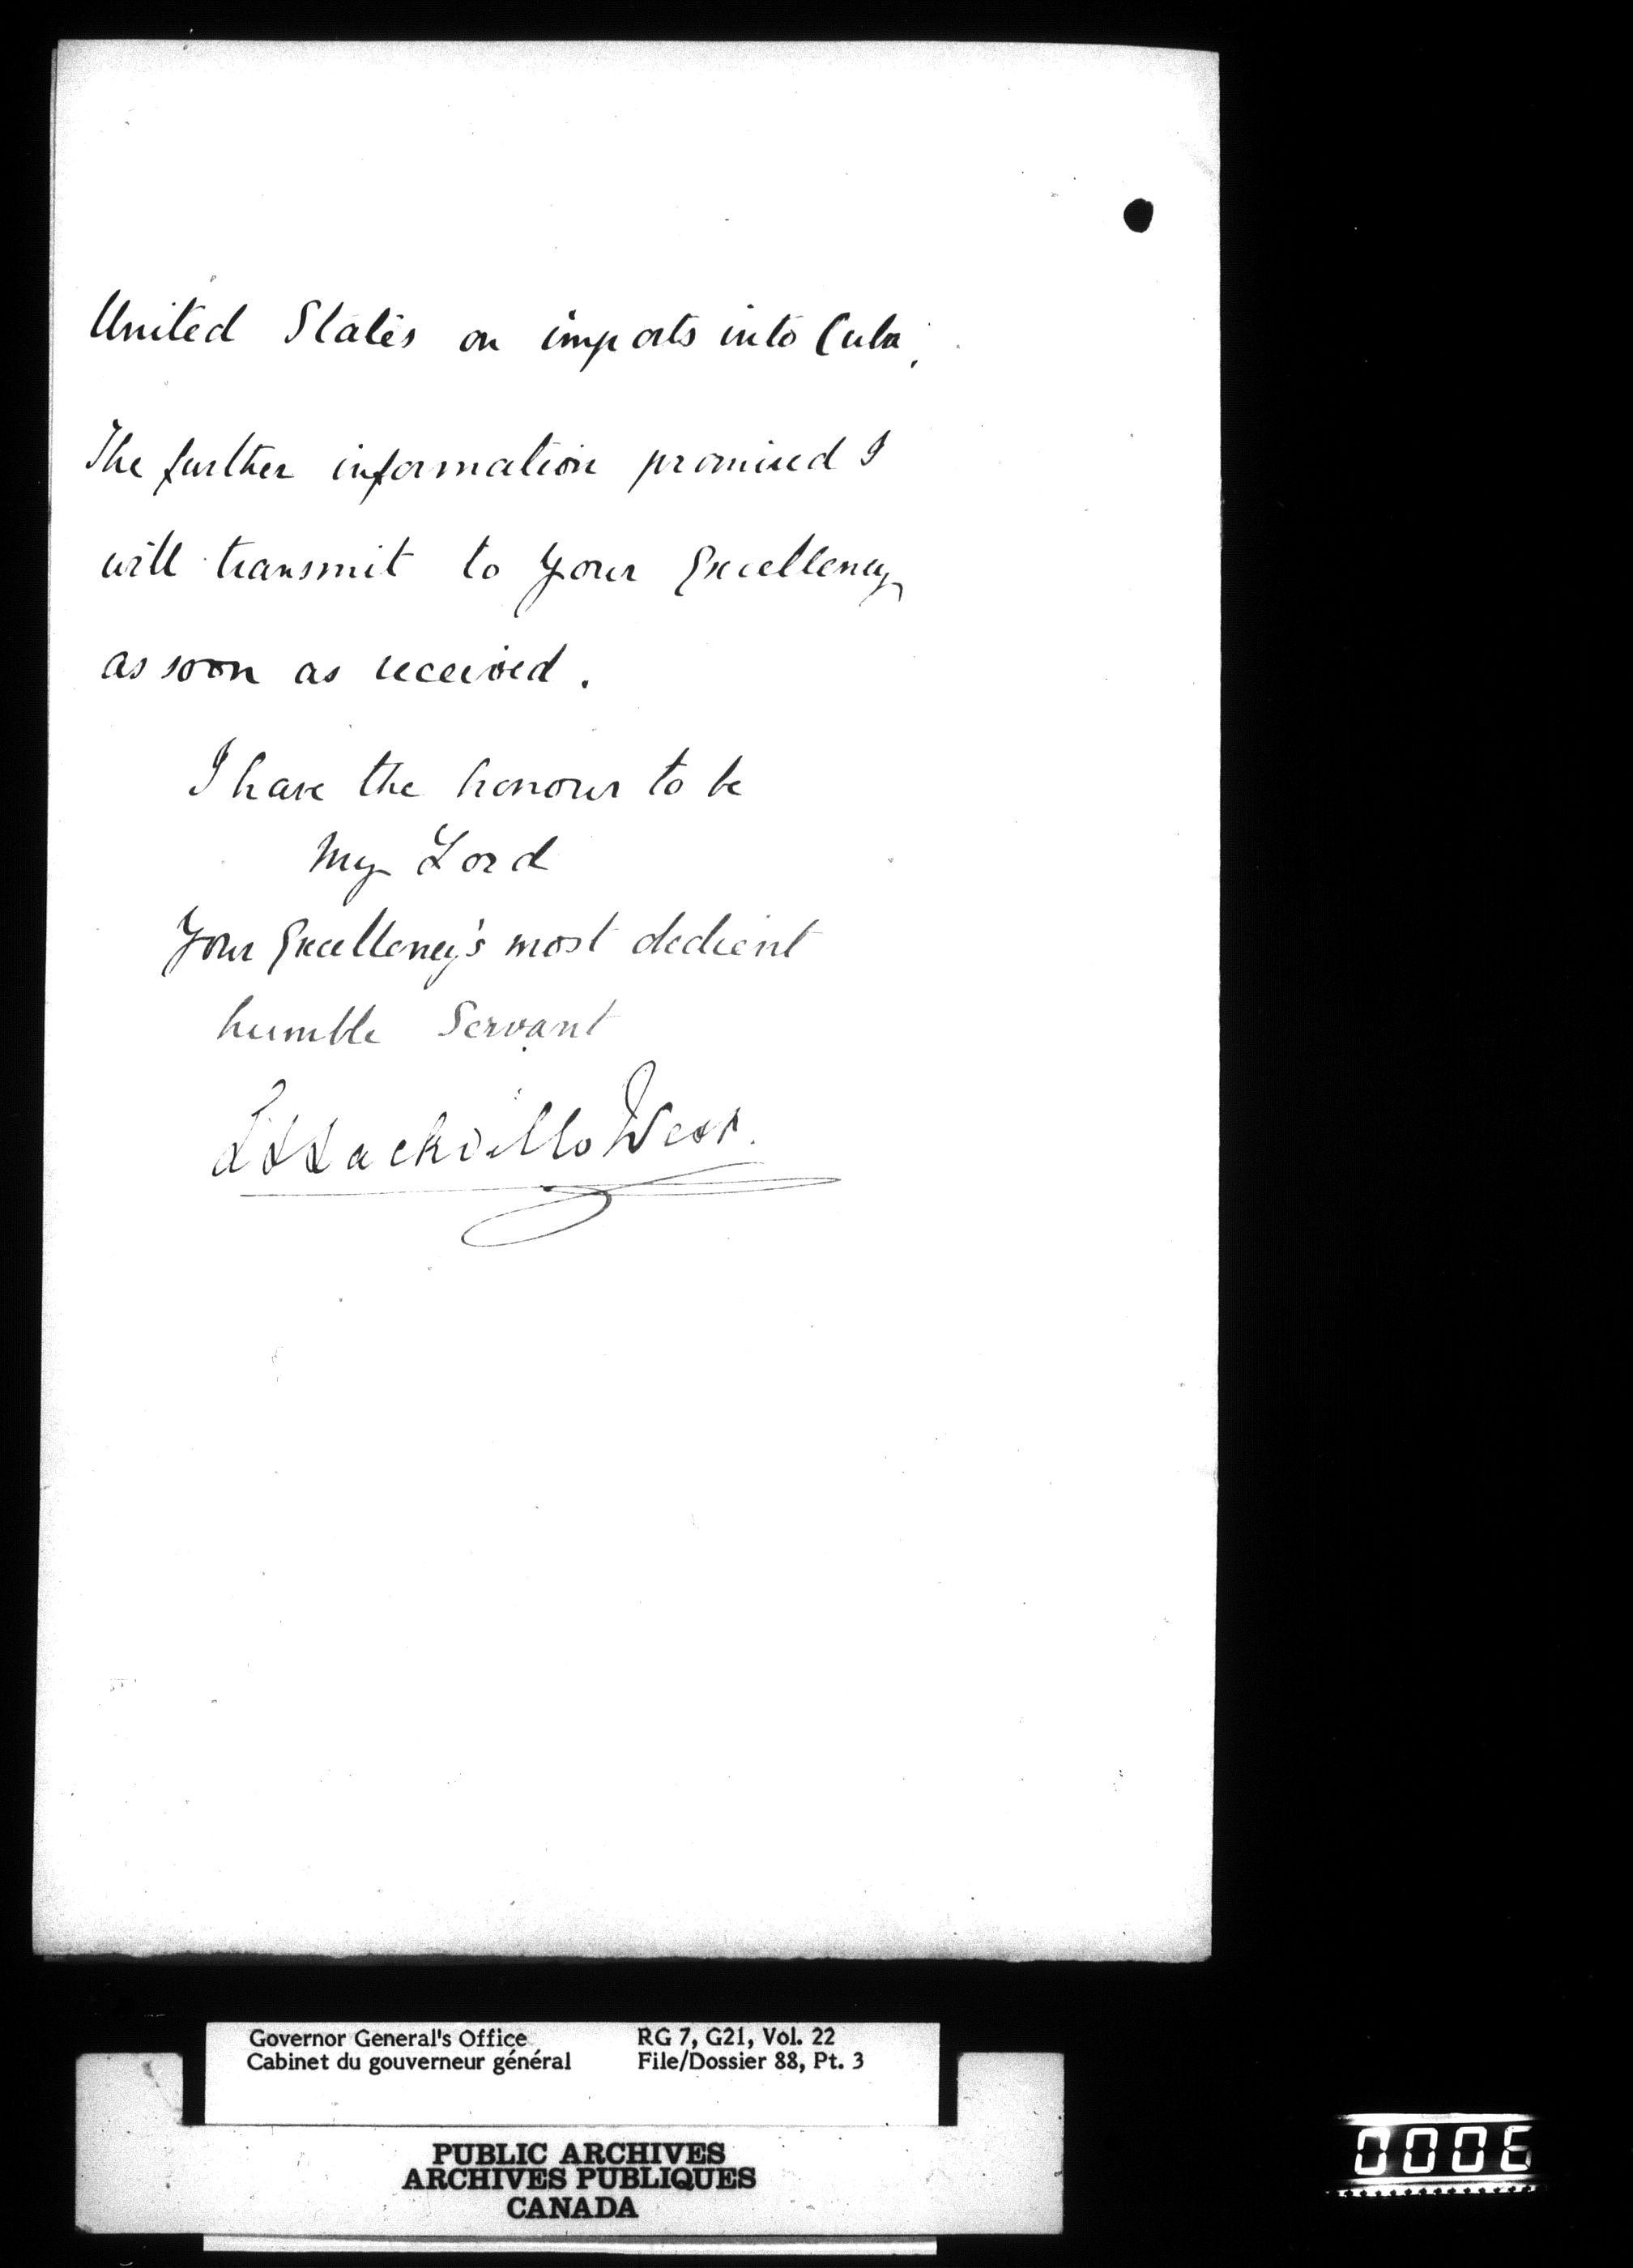 United States on imports into Cuba.
The further information promised I
will transmit to Your Excellency
as soon as received.
I have the honour to be
My Lord
Your Excellency's most obedient
humble Servant
L S Sackville West.
Governor General's Office
Cabinet du gouverneur général
RG 7, G21, Vol. 22
File/Dossier 88, Pt. 3
PUBLIC ARCHIVES
ARCHIVES PUBLIQUES
CANADA
0006